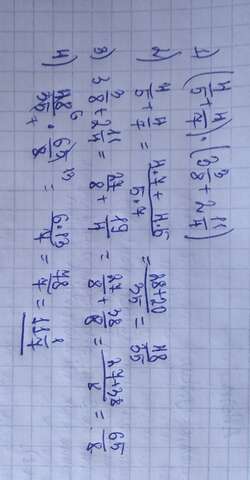 1) (4/5 + 4/7) · (3 3/8 + 2 11/4)
2) 4/5 + 4/7 = 4·7+4·5/5·7 = 28+20/35 = 48/35
3) 3 3/8 + 2 11/4 = 27/8 + 19/4 = 27/8 + 38/8 = 27+38/8 = 65/8
4) 48 6/35 7 · 65 13/8 = 6·13/7 = 78/7 = 11 1/7